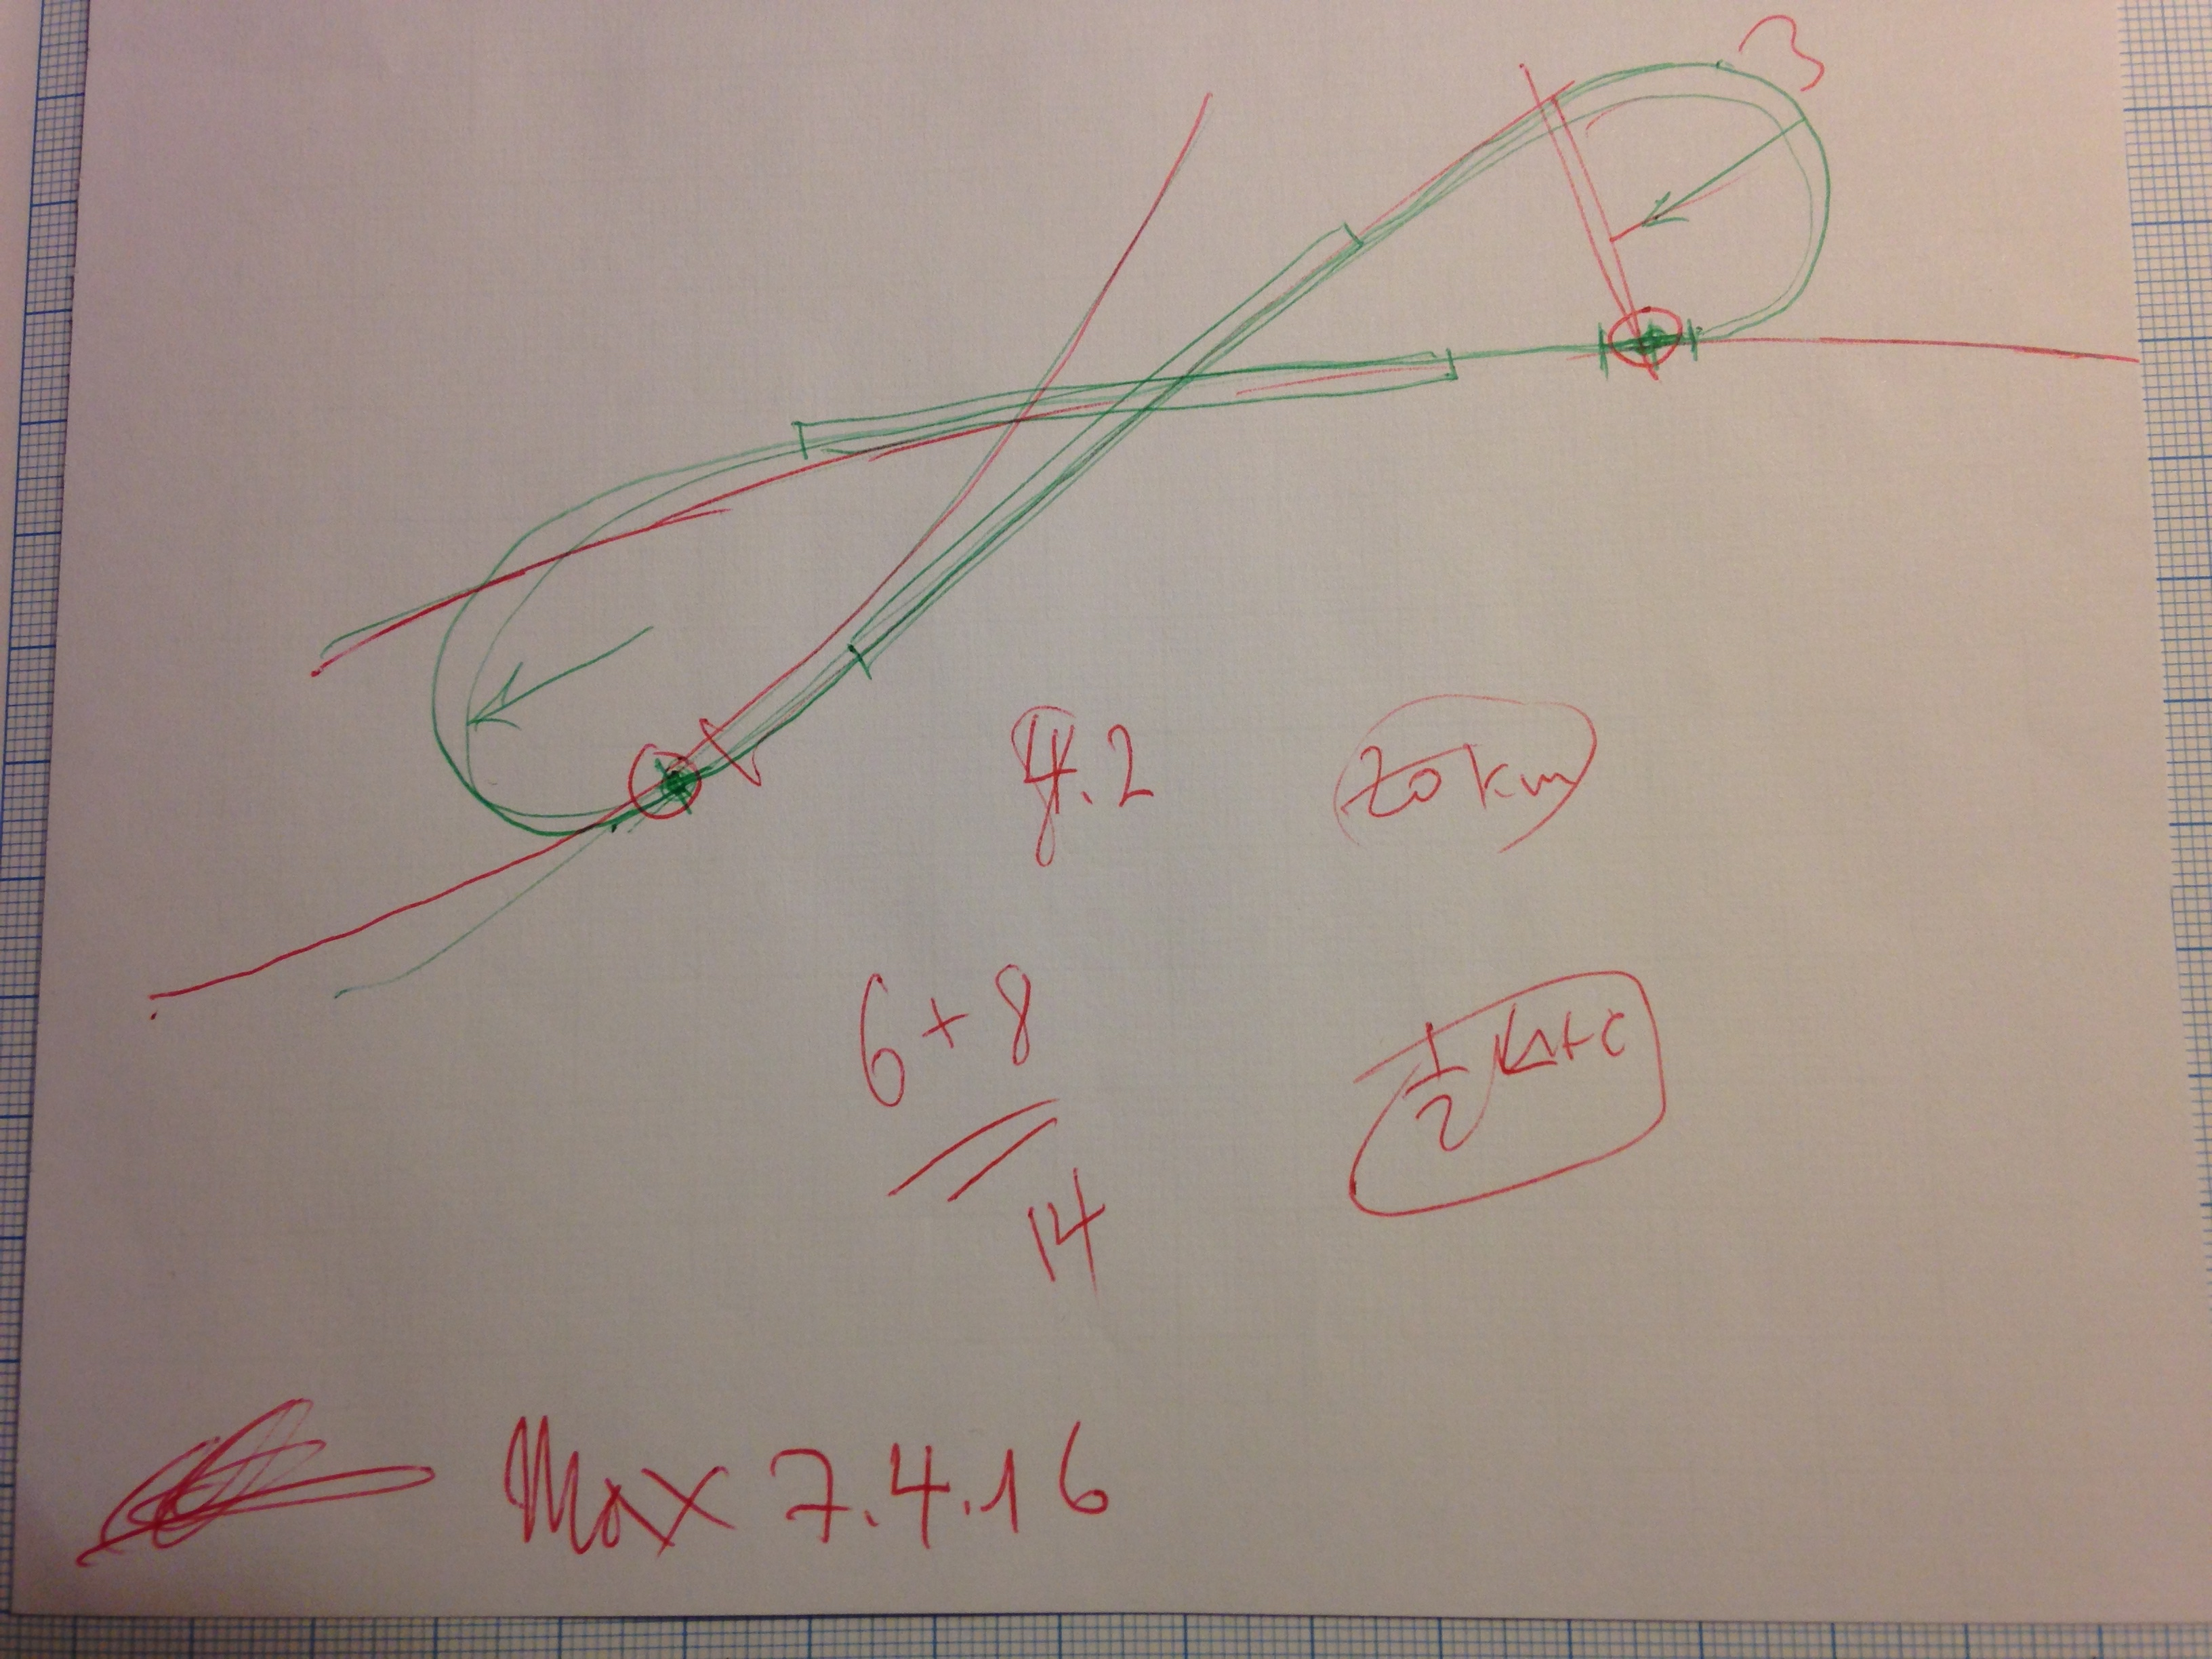 3
4.2
20 km
6+8
14
1/2
Max 7.4.16